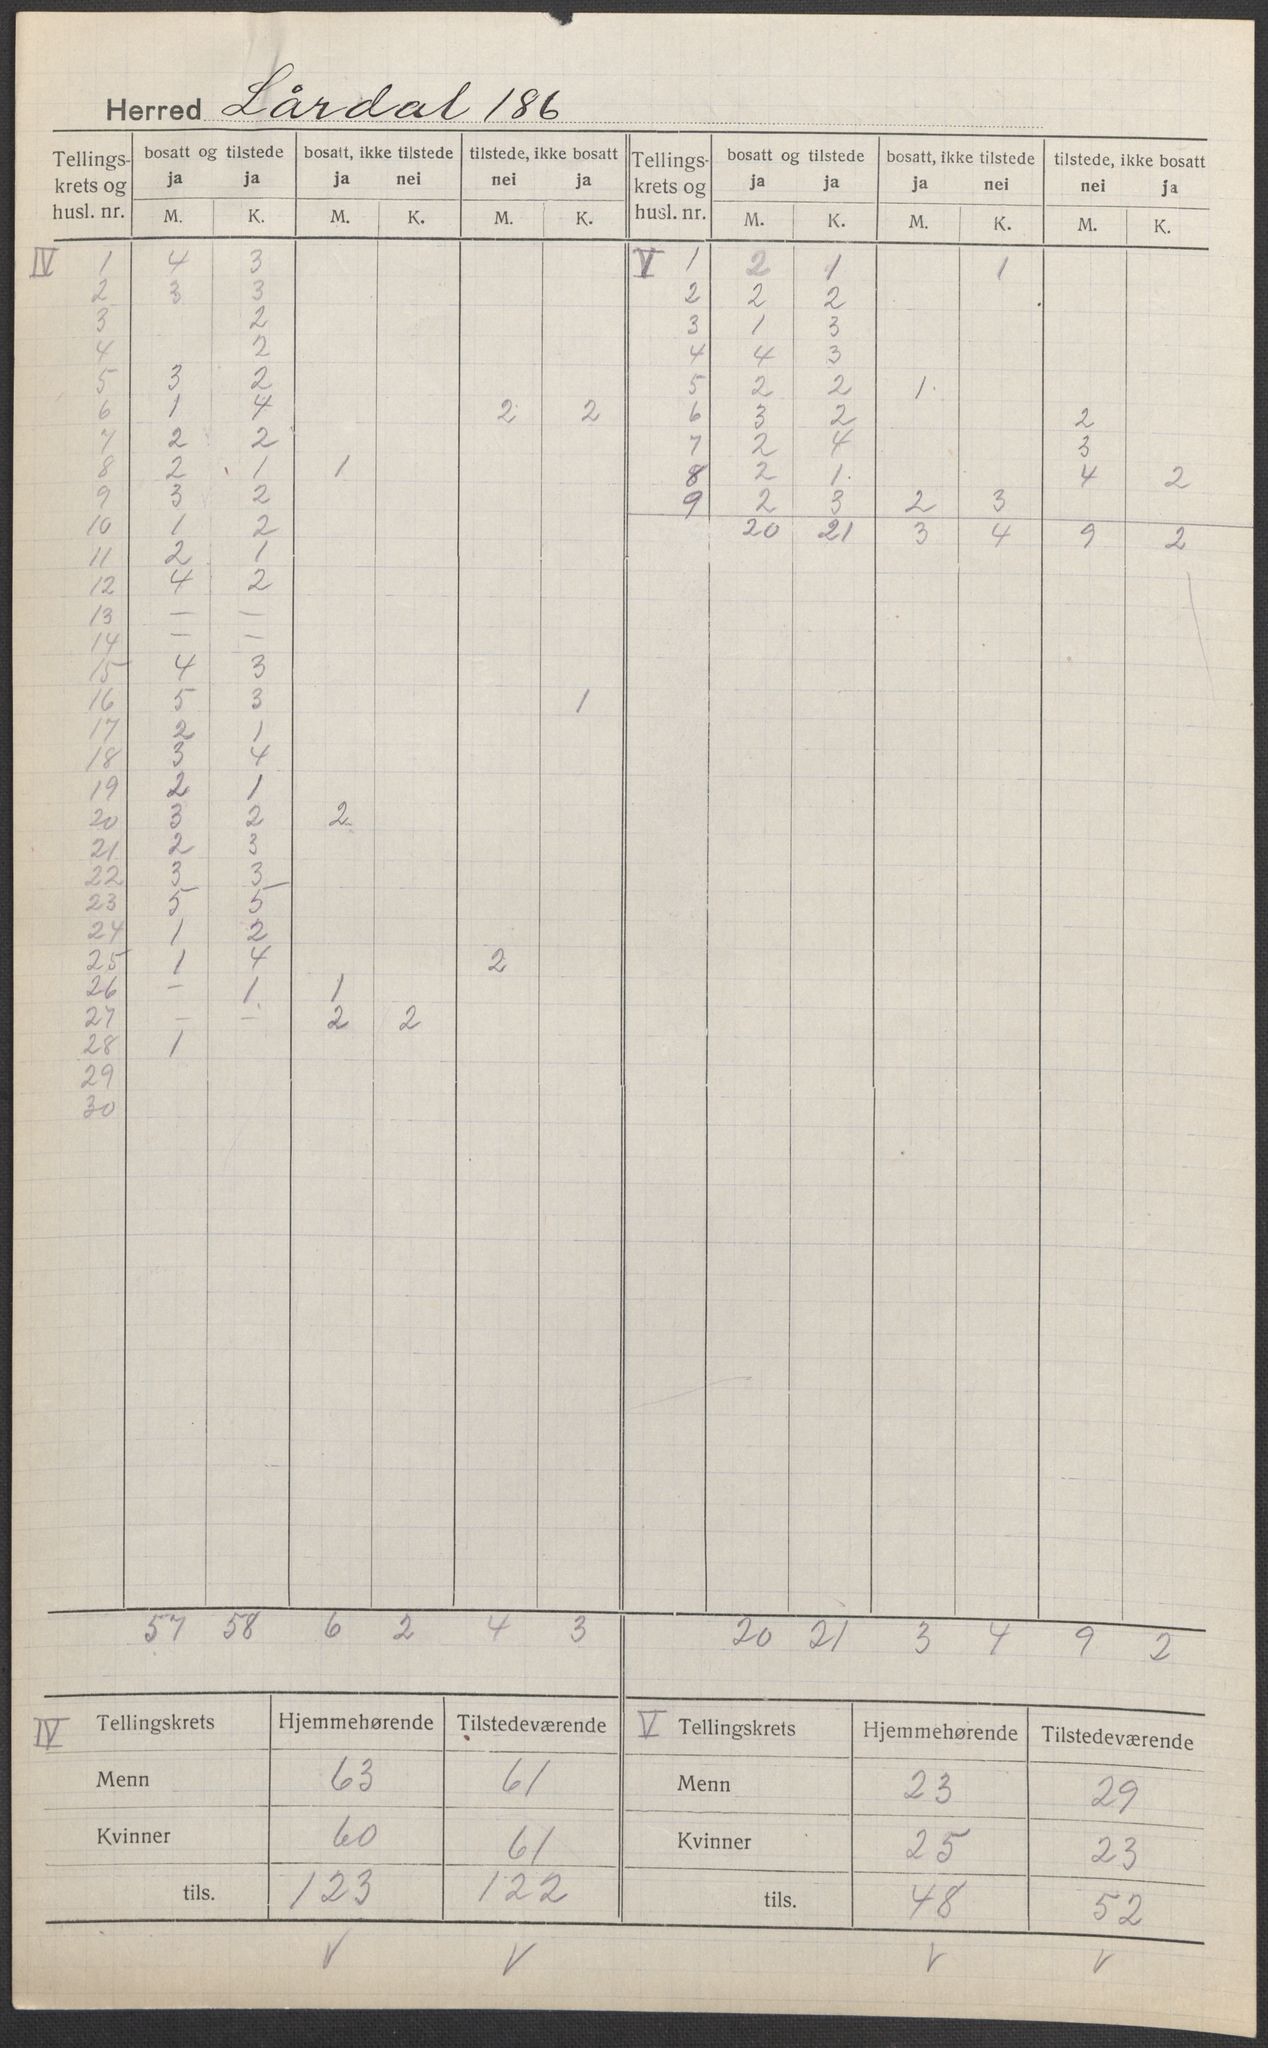 Herred Lårdal 186
Tellings- krets og husl. nr. | bosatt og tilstede ja ja | bosatt, ikke tilstede ja nei | tilstede, ikke bosatt nei ja | Tellings- krets og husl. nr. | bosatt og tilstede ja ja | bosatt, ikke tilstede ja nei | tilstede, ikke bosatt nei ja
M. K. M. K. M. K. M. K. M. K. M. K.
IV 1 4 3 | V 1 2 1 1
2 3 3 | 2 2 2
3 2 | 3 1 3
4 2 | 4 4 3
5 3 2 | 5 2 2 1
6 1 4 2 2 | 6 3 2 2
7 2 2 | 7 2 4 3
8 2 1 1 | 8 2 1 4 2
9 3 2 | 9 2 3 2 3
10 1 2 | 20 21 3 4 9 2
11 2 1
12 4 2
13 — —
14 — —
15 4 3
16 5 3 1
17 2 1
18 3 4
19 2 1
20 3 2 2
21 2 3
22 3 3
23 5 5
24 1 2
25 1 4 2
26 – 1 1
27 – – 2 2
28 1
29
30
57 58 6 2 4 3 | 20 21 3 4 9 2
IV Tellingskrets Hjemmehørende Tilstedeværende | V Tellingskrets Hjemmehørende Tilstedeværende
Menn 63 61 | Menn 23 29
Kvinner 60 61 | Kvinner 25 23
tils. 123 122 | tils. 48 52
V V V V